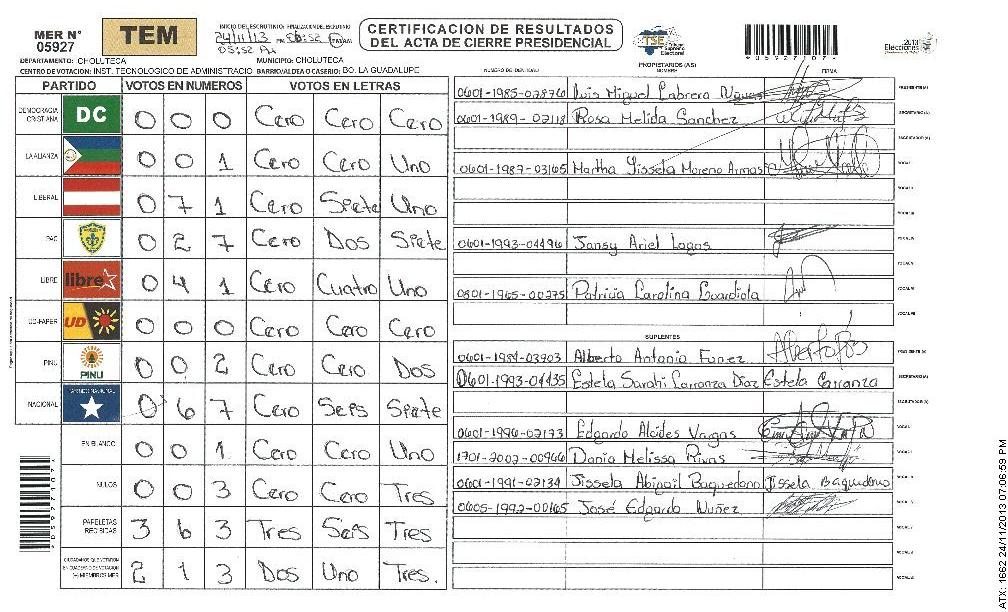 MER N° 05927
TEM
INICIO DEL ESCRUTINIO: FINALIZACION DEL ESCRUTINIO
24/11/13
CERTIFICACION DE RESULTADOS
DEL ACTA DE CIERRE PRESIDENCIAL
TSE Tribunal Supremo Electoral
*05927107*
2013 Elecciones
DEPARTAMENTO: CHOLUTECA MUNICIPIO: CHOLUTECA
CENTRO DE VOTACION: INST. TECNOLOGICO DE ADMINISTRACIO BARRIO/ALDEA O CASERIO: BO. LA GUADALUPE
PARTIDO VOTOS EN NUMEROS VOTOS EN LETRAS
DEMOCRACIA CRISTIANA DC 0 0 0 Cero Cero Cero
LA ALIANZA 0 0 1 Cero Cero Uno
LIBERAL 0 7 1 Cero Siete Uno
PAC 0 2 7 Cero Dos Siete
LIBRE libre 0 4 1 Cero Cuatro Uno
UD-FAPER UD 0 0 0 Cero Cero Cero
PINU PINU 0 0 2 Cero Cero Dos
NACIONAL PARTIDO NACIONAL 0 6 7 Cero Seis Siete
EN BLANCO 0 0 1 Cero Cero Uno
NULOS 0 0 3 Cero Cero Tres
PAPELETAS RECIBIDAS 3 6 3 Tres Seis Tres
CIUDADANOS QUE VOTARON EN CUADERNO DE VOTACION (+) MIEMBROS MER 2 1 3 Dos Uno Tres.
*05927107*
PROPIETARIOS (AS)
NOMBRE FIRMA
0601-1985-02876 Luis Miguel Cabrera PRESIDENTE (A)
0601-1989-02118 Rosa Melida Sanchez SECRETARIO (A)
ESCRUTADOR (A)
0601-1987-03165 Martha Jissela Moreno Armas VOCAL I
0601-1993-04496 Jansy Ariel Lagos
0801-1965-00275 Patricia Carolina Guardiola
SUPLENTES
0601-1984-03903 Alberto Antonio Funez PRESIDENTE (A)
0601-1993-04435 Estela Sarahi Carranza Diaz Estela Carranza SECRETARIO (A)
ESCRUTADOR (A)
0601-1996-02173 Edgardo Alcides Vargas
1701-2002-00966 Dania Melissa Rivas
0601-1991-02134 Jissela Abigail Baquedano Jissela Baquedano
0605-1992-00165 José Edgardo Nuñez
ATX: 1662 24/11/2013 07:06:59 PM